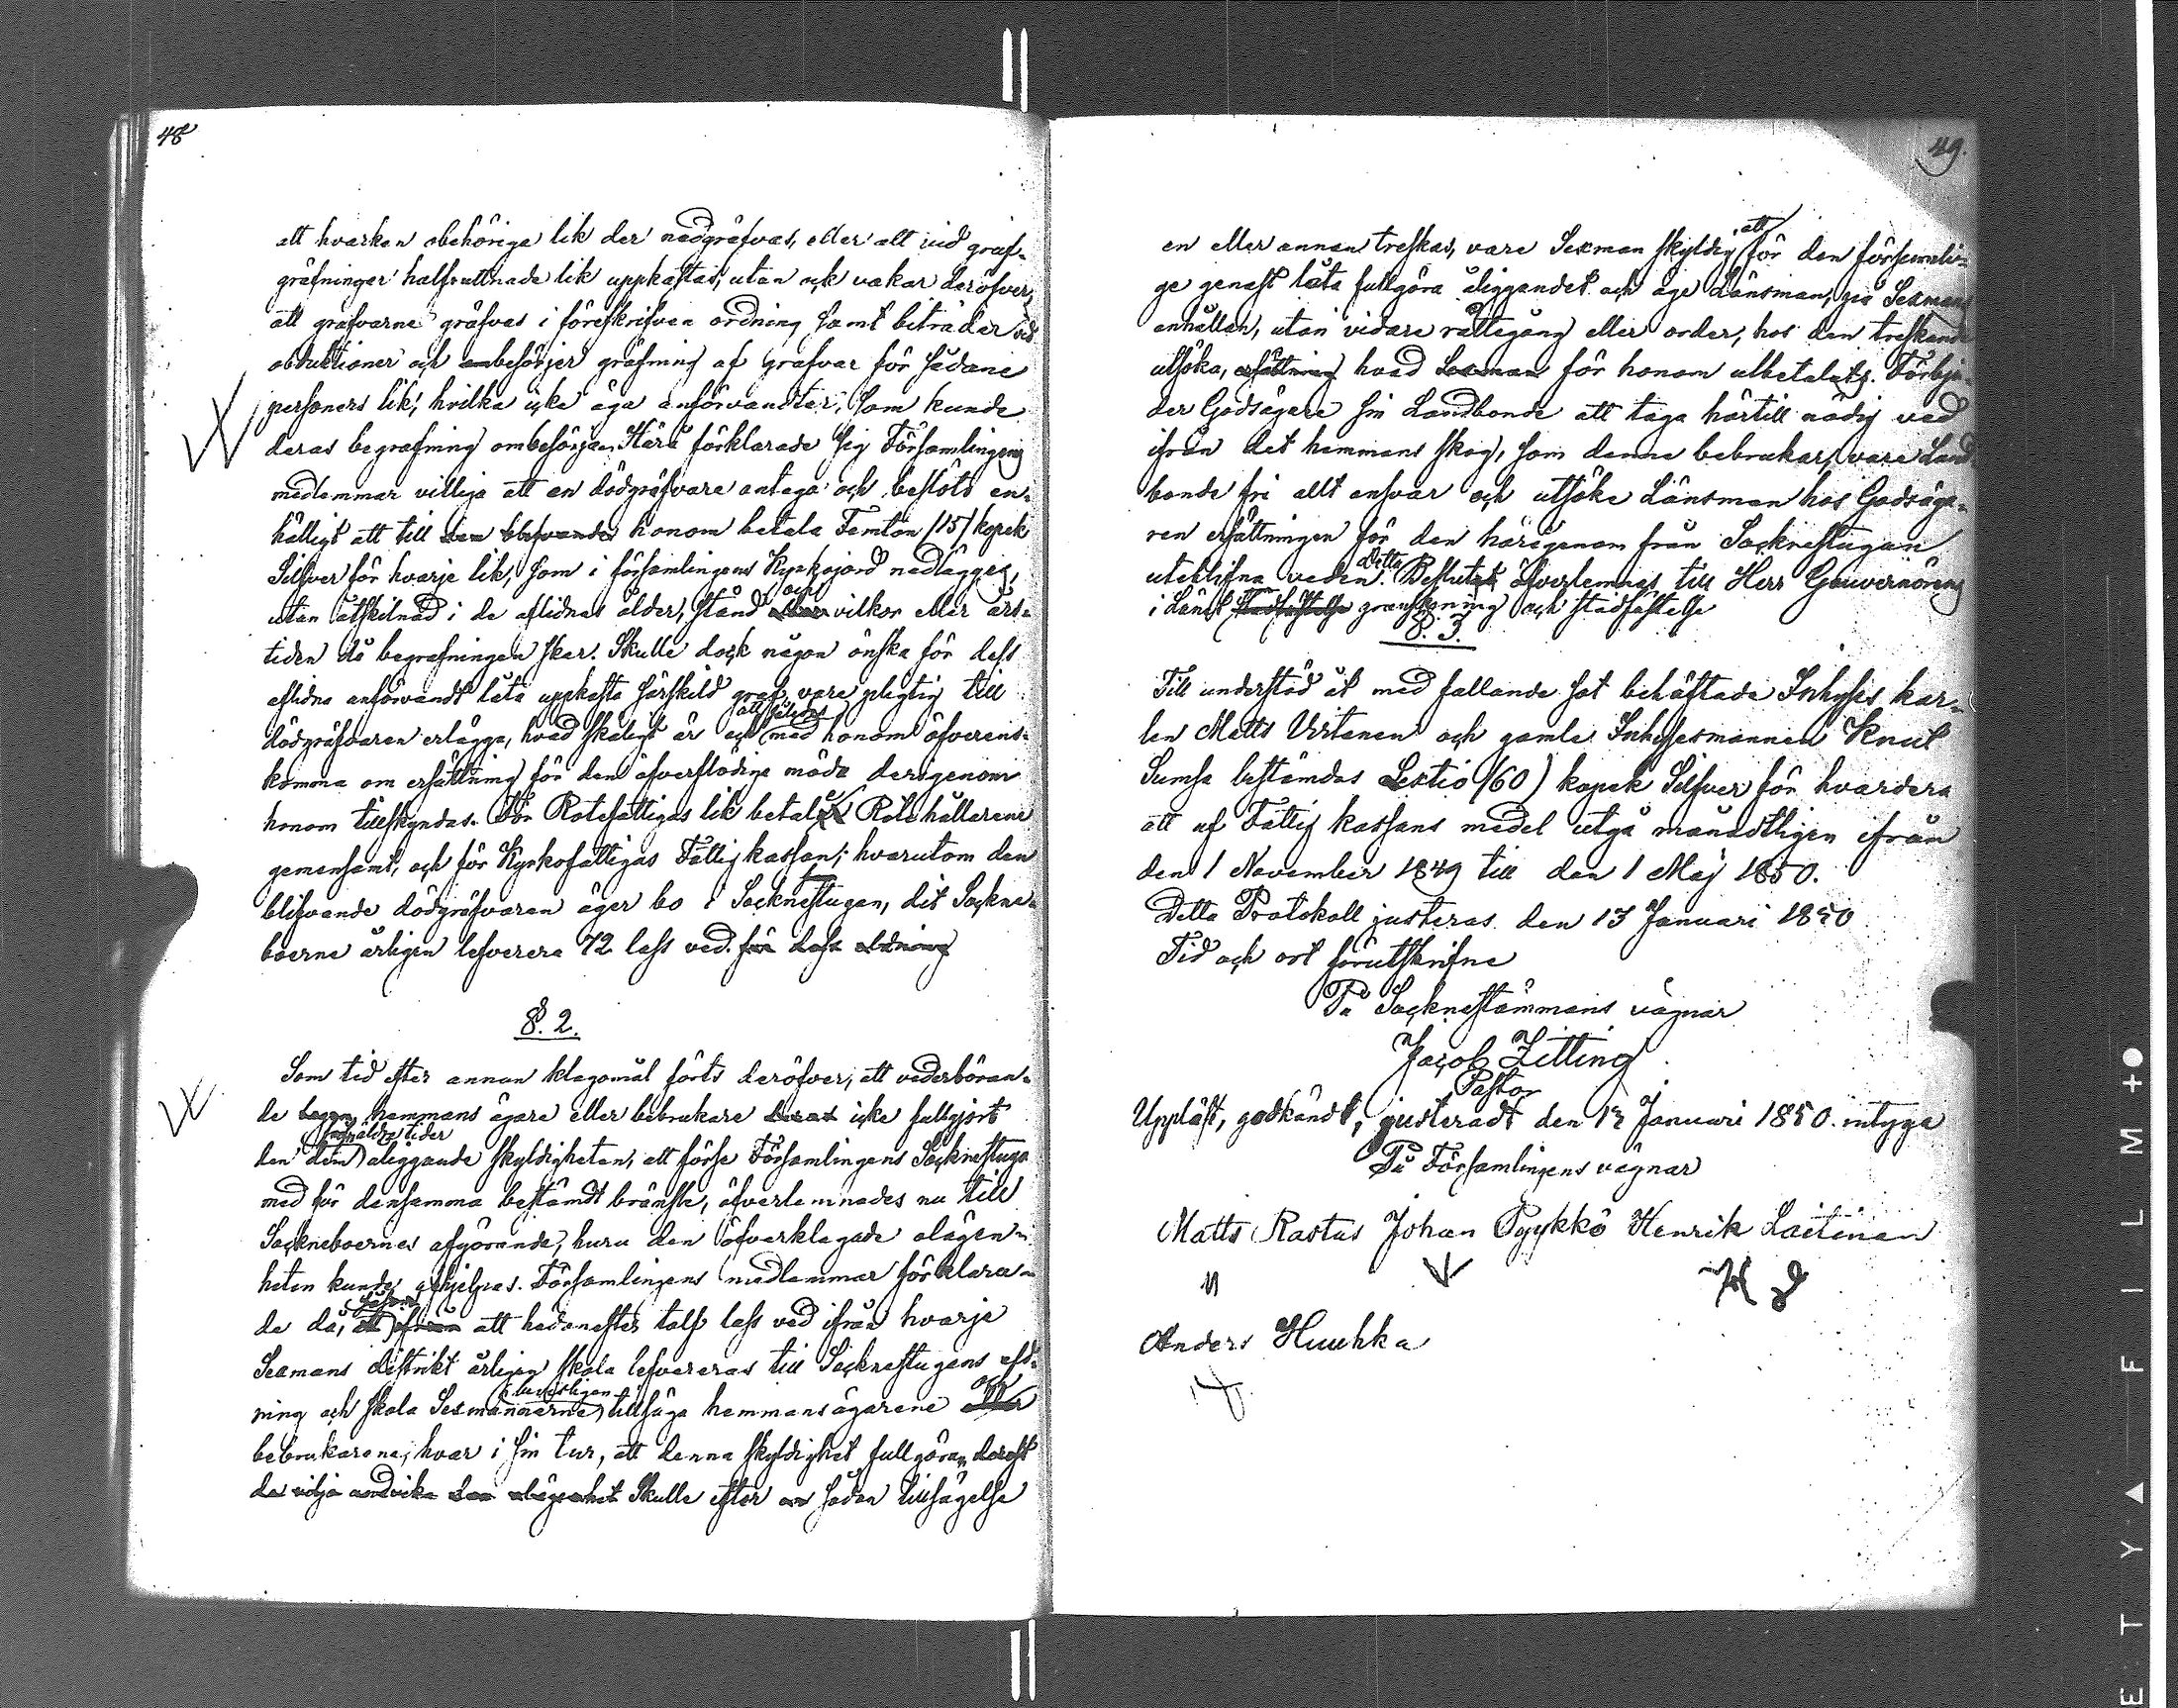 48
att hvarken obehöriga lik der nedgräfvas, eller att vid graf-
gräfninger halfruttnade lik uppkastas, utan ock vakar deröfver,
att grafvarne gräfvas i föreskrifven ordning samt biträder vid
obduktioner och ombesörjer gräfning af grafvar för sådane
personers lik, hvilka icke äga anförvandter, som kunde
deras begrafning ombesörja. Härå förklarade sig Församlingens
medlemmar villiga att en dödgräfvare antaga och beslöts en-
hälligt att till den blifvande honom betala Femton (15) kopek
Silfver för hvarje lik, som i församlingens Kyrkojord nedlägges,
utan åtskilnad i de aflidnas ålder, stånd och vilkor eller års-
tiden då begrafningen sker. Skulle dock någon önska för dess
aflidna anförvandt låta uppkasta särskild graf, vare pligtig till
dödgräfvaren erlägga, hvad skäligt är och att såleds med honom öfverens-
komma om ersättning för den öfverflödiga möda derigenom
honom tillskyndas. För Rotefattigas lik betala Rotehållarene
gemensamt, och för Kyrkofattigas Fattigkassan; hvarutom den
blifvande dödgräfvaren äger bo i Sockenstugan, dit Sockne-
boerne årligen lefverera 72 lass ved. för dess eldning
§. 2.
Som tid efter annan klagomål förts deröfver, att vederböran-
de hemmans ägare eller bebrukare icke fullgjort
den dem fordna tider åliggande skyldigheten, att förse Församlingens Socknestuga
med för densamma bestämdt bränsle, öfverlemnades nu till
Sockneboernes afgörande, huru den öfverklagade olägen-
heten kunde afhjelpas. Församlingens medlemmar förklara-
de då, att hädanefter tolf lass ved ifrån hvarje
Sexmans distrikt årligen skola lefvereras till Socknestugans eld-
ning och skola Sexmännerne tillsäga hemmansägarene och
bebrukarene, hvar i sin tur, att denna skyldighet fullgöra, derest
de vilja undvika den olägenhet Skulle efter sådan tillsägelse
49.
en eller annan treskas, vare Sexman skyldig att för den försumli-
ge genast låta fullgöra åliggandet och äge Länsman, på Sexmans
anhållan, utan vidare rättegång eller order, hos den treskande
utsöka, ersättning hvad Sexman för honom utbetalats. Förbju-
der Godsägare sin Landbonde att taga härtill nödig ved
ifrån det hemmans skog, som denne bebrukar, vare Land
bonde fri allt ansvar och utsöke Länsman hos Godsäga-
ren ersättningen för den härigenom från Socknestugan
uteblifna veden. Detta Beslut öfverlemnas till Herr Gouvernörens
i Länet stadfästelse granskning och stadfästelse
§. 3.
Till understöd åt med fallande sot behäftade Inhyses kar-
len Matts Virtanen och gamle Inhysesmannen Knut
Sumsa bestämdes Sextio (60) kopek Silfver för hvardera
att af Fattig kassans medel utgå månadtligen ifrån
den 1 November 1849 till den 1 Maj 1850.
Detta Protokoll justeras den 13 Januari 1850
Tid och ort förutskrifne
På Socknestämmans vägnar
Jacob Zitting
Pastor
Uppläst, godkändt, justeradt den 13 Januari 1850. intyga
På Församlingens vägnar
Matts Rastas Johan Pyykkö Henrik Laitinen
Anders Huuhka
E T Y ▲ F I L M +●